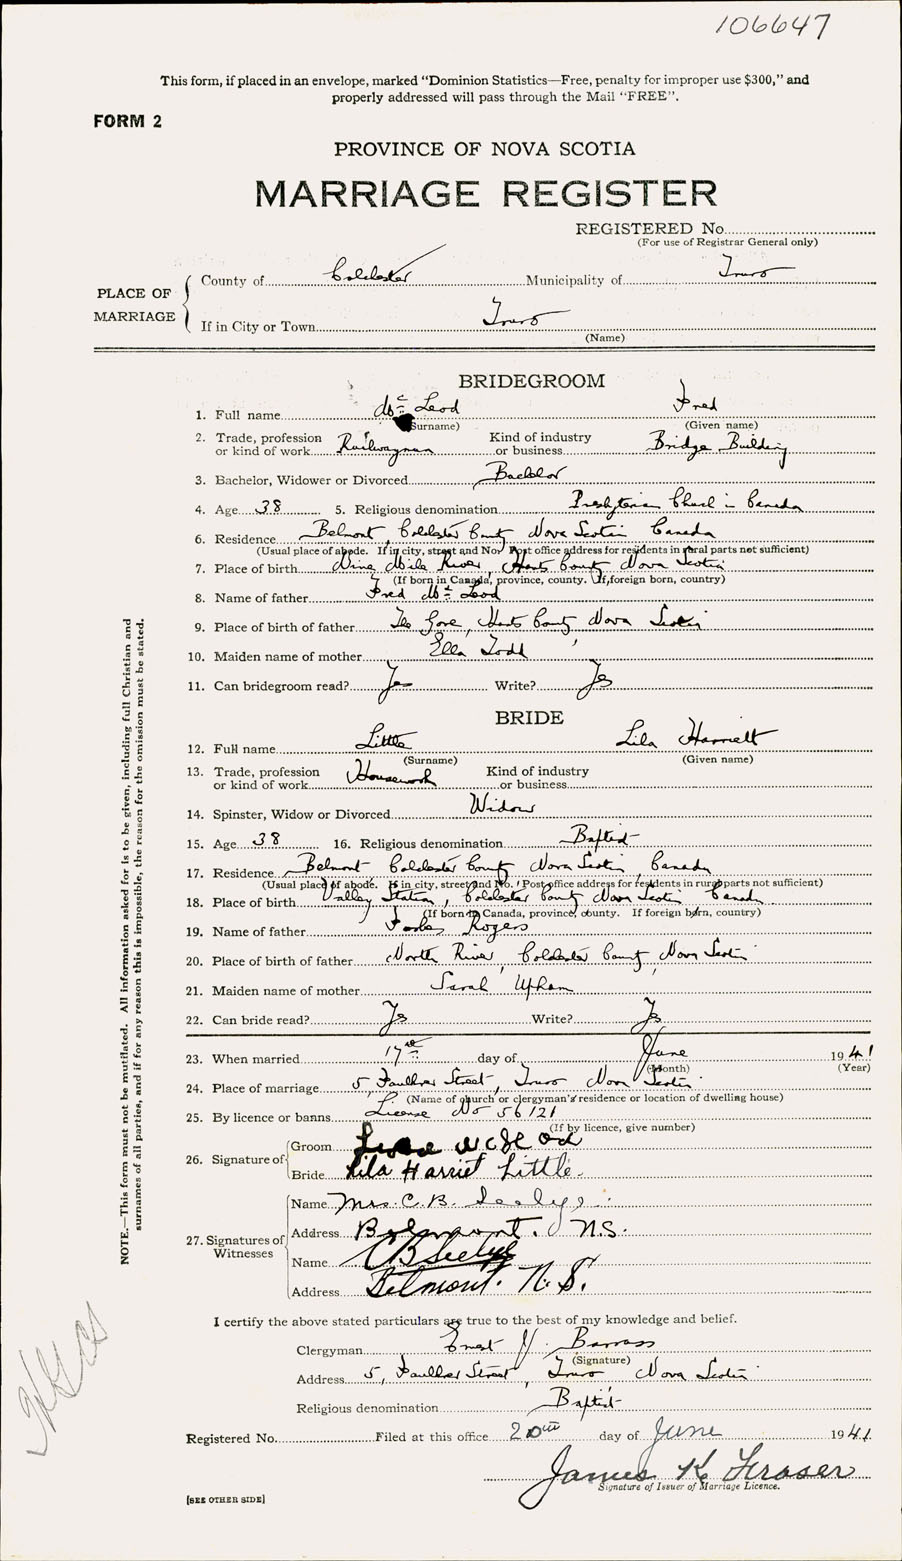 106647
This form, if placed in an envelope, marked “Dominion Statistics—Free, penalty for improper use $300,” and
properly addressed will pass through the Mail “FREE”.
FORM 2
PROVINCE OF NOVA SCOTIA
MARRIAGE REGISTER
REGISTERED No.
(For use of Registrar General only)
PLACE OF MARRIAGE
County of Colchester Municipality of Truro
If in City or Town Truro
(Name)
BRIDEGROOM
1. Full name McLeod Fred
(Surname) (Given name)
2. Trade, profession Kind of industry
or kind of work Railwayman or business Bridge Building
3. Bachelor, Widower or Divorced Bachelor
4. Age 38 5. Religious denomination Presbyterian Church in Canada
6. Residence Belmont, Colchester County Nova Scotia Canada
(Usual place of abode. If in city, street and No. Post office address for residents in rural parts not sufficient)
7. Place of birth Nine Mile River, Hants County Nova Scotia
(If born in Canada, province, county. If foreign born, country)
8. Name of father Fred McLeod
9. Place of birth of father The Gore, Hants County Nova Scotia
10. Maiden name of mother Ella Todd
11. Can bridegroom read? Yes Write? Yes
BRIDE
12. Full name Little Lila Harriett
(Surname) (Given name)
13. Trade, profession Kind of industry
or kind of work Housework or business
14. Spinster, Widow or Divorced Widow
15. Age 38 16. Religious denomination Baptist
17. Residence Belmont Colchester County Nova Scotia, Canada
(Usual place of abode. If in city, street and No. Post office address for residents in rural parts not sufficient)
18. Place of birth Valley Station, Colchester County Nova Scotia Canada
(If born in Canada, province, county. If foreign born, country)
19. Name of father Forbes Rogers
20. Place of birth of father North River, Colchester County, Nova Scotia
21. Maiden name of mother Sarah Upham
22. Can bride read? Yes Write? Yes
23. When married 17th day of June 1941
(Month) (Year)
24. Place of marriage 5 Faulkner Street, Truro Nova Scotia
(Name of church or clergyman's residence or location of dwelling house)
25. By licence or banns License No 56121
(If by licence, give number)
26. Signature of
Groom McLeod
Bride Lila Harriet Little.
27. Signatures of Witnesses
Name Mrs. C. B. Seelye
Address Belmont. N.S.
Name C B Seelye
Address Belmont. N. S.
I certify the above stated particulars are true to the best of my knowledge and belief.
Clergyman Ernest Barrass
(Signature)
Address 5, Faulkner Street, Truro Nova Scotia
Religious denomination Baptist
Registered No. Filed at this office 20th day of June 1941
James K Fraser
Signature of Issuer of Marriage Licence.
[SEE OTHER SIDE]
NOTE.—This form must not be mutilated. All information asked for is to be given, including full Christian and
surnames of all parties, and if for any reason this is impossible, the reason for the omission must be stated.